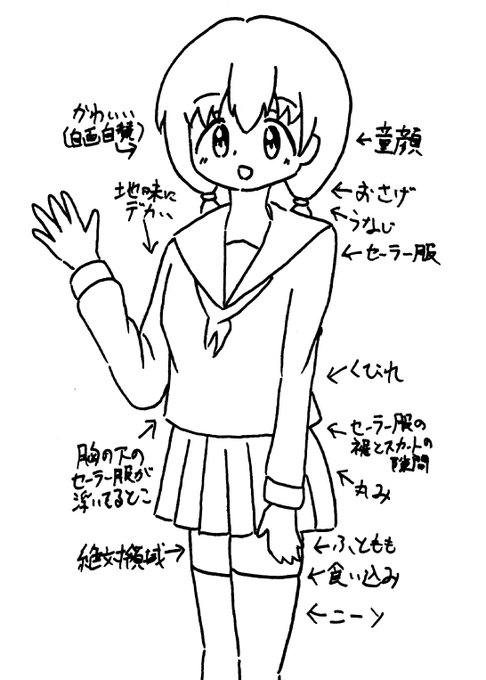 かわいい
(自画自賛)
地味に
デカい
胸の下の
セーラー服が
浮いてるとこ
絶対領域
童顔
おさげ
うなじ
セーラー服
くびれ
セーラー服の
裾とスカートの
隙間
丸み
ふともも
食い込み
ニーソ